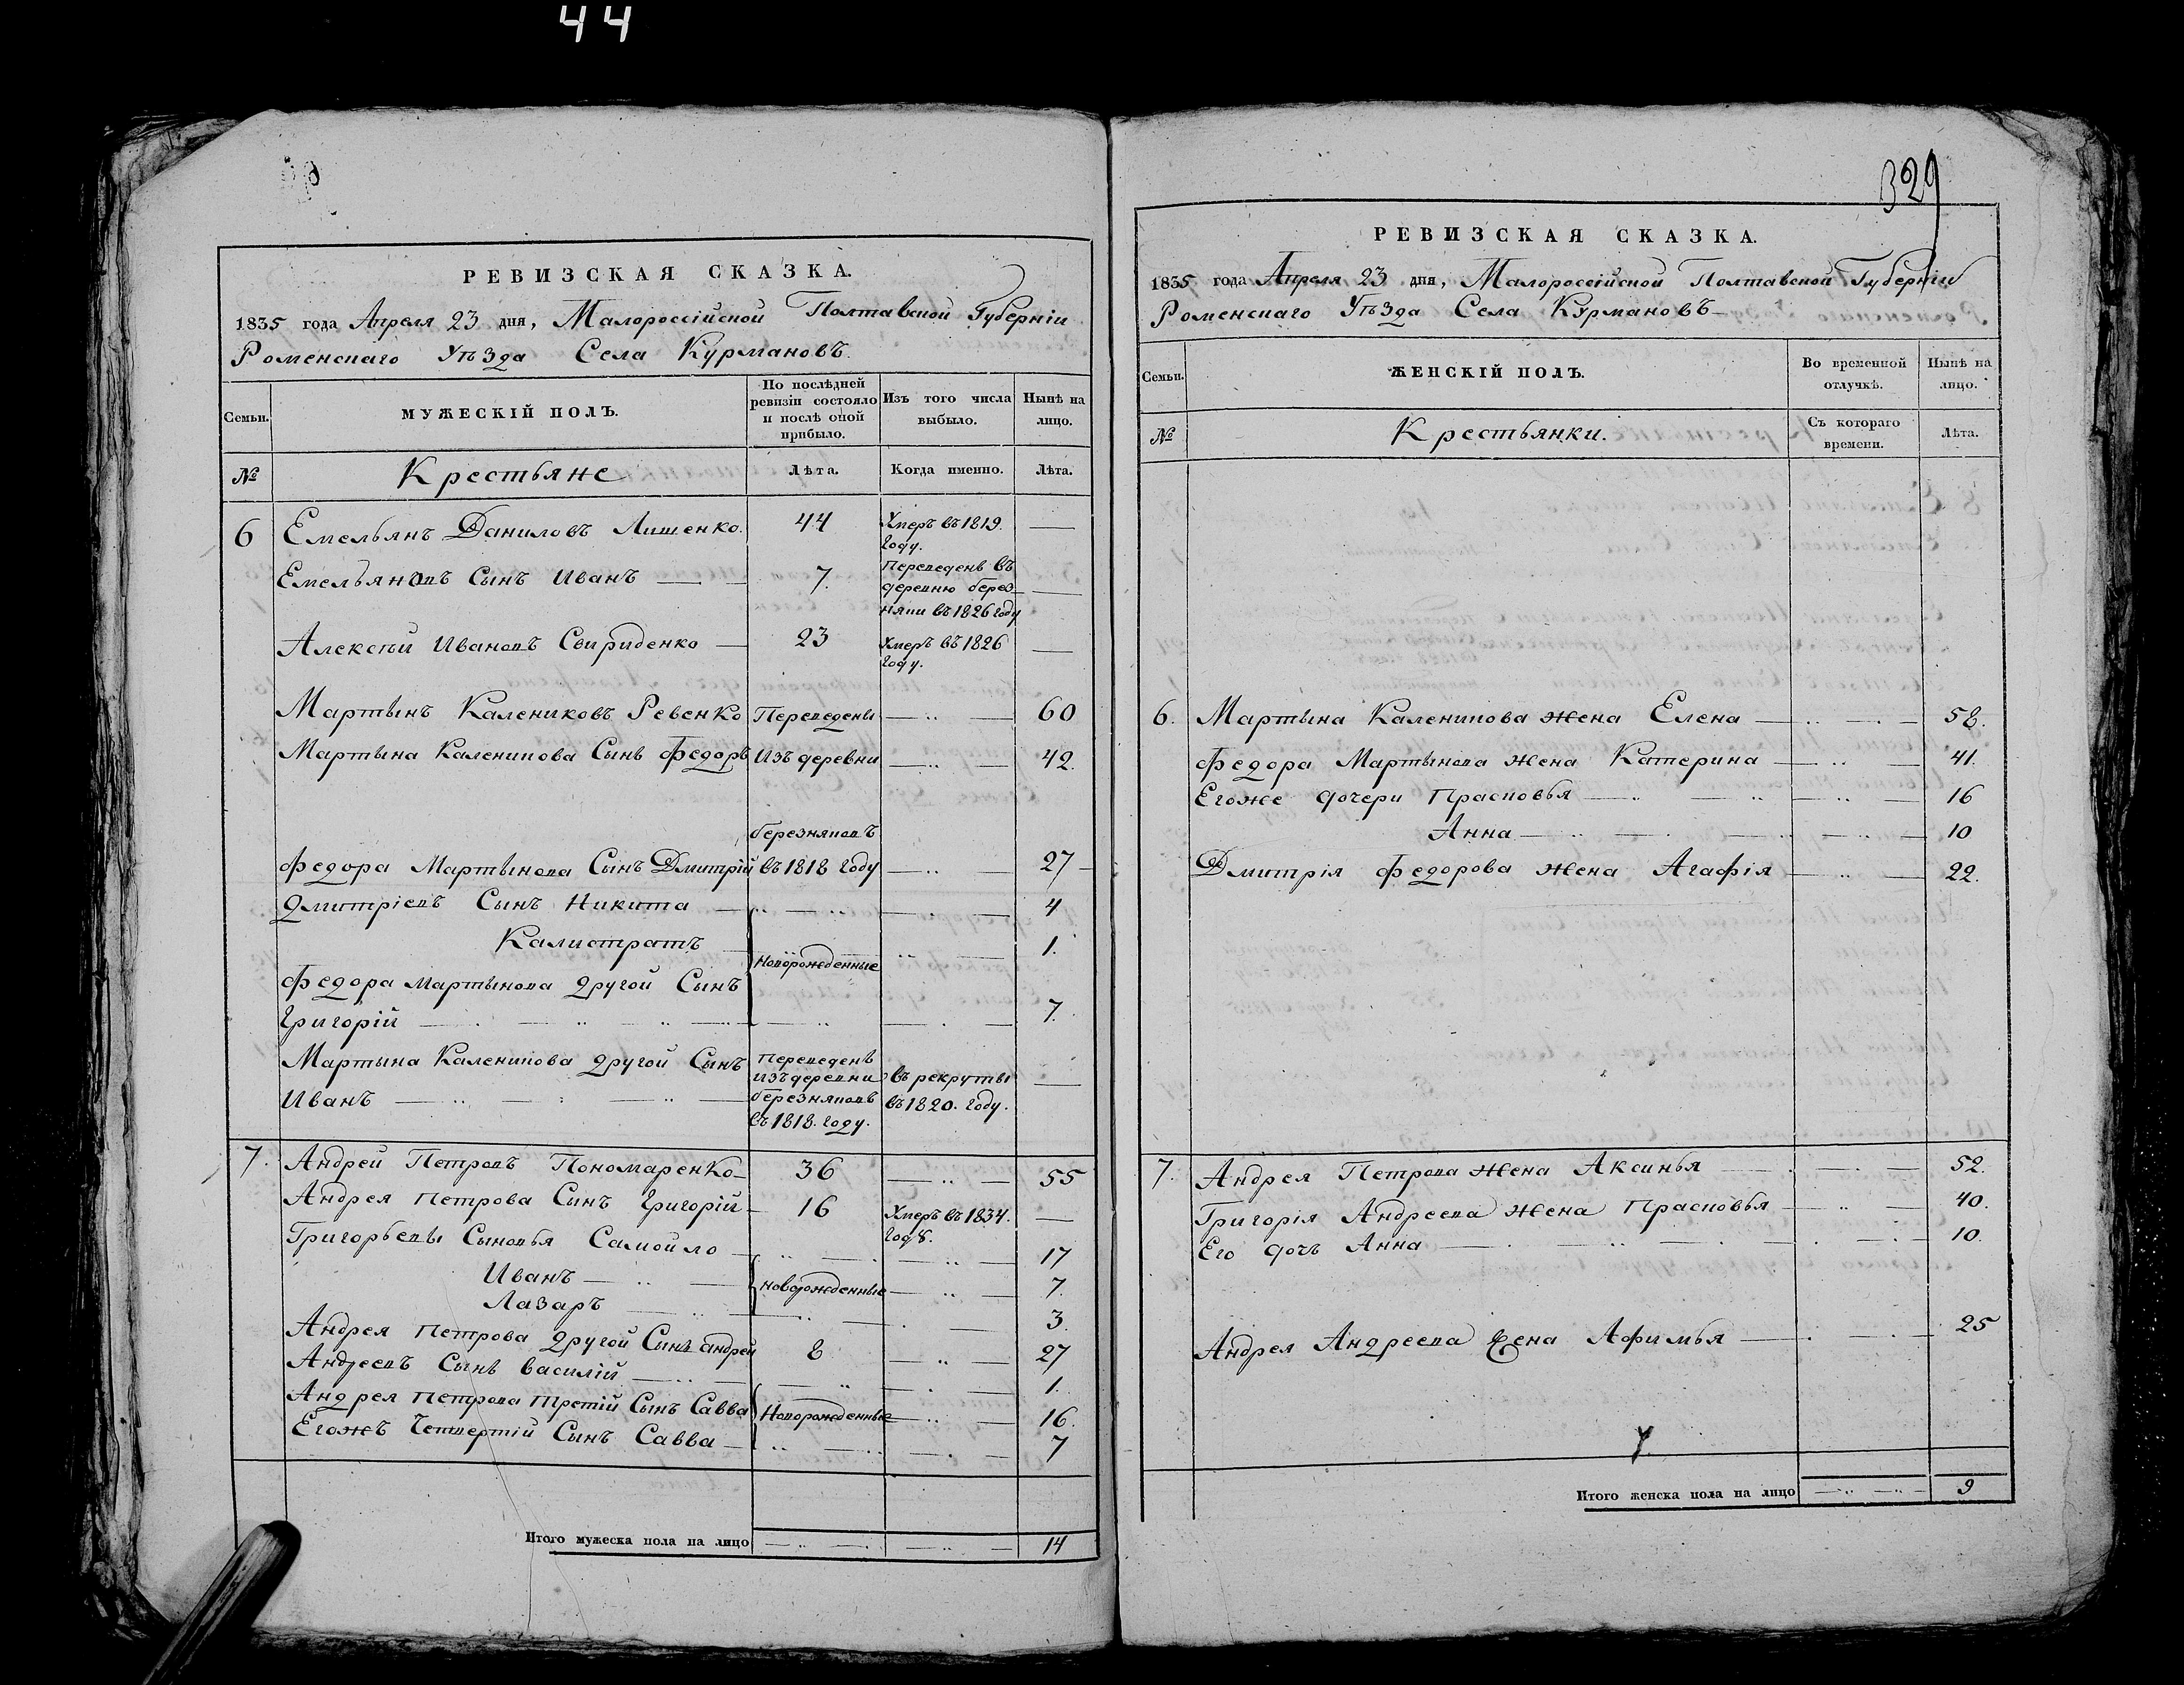 44
РЕВИЗСКАЯ СКАЗКА.
1835 года Апреля 23 дня, Малороссійской Полтавской Губерніи
Роменскаго Уѣзда Села Курмановъ.
Семьи.
МУЖЕСКІЙ ПОЛЪ.
По послѣдней ревизіи состояло и послѣ оной прибыло.
Изъ того числа выбыло.
Нынѣ на лицо.
№
Крестьяне
Лѣта.
Когда именно.
Лѣта.
6 Емельянъ Даниловъ Лишенко. 44 Умеръ въ 1819. году. —
Емельяновъ Сынъ Иванъ — 7. Переведенъ въ деревню берез-няки въ 1826 году —
Алексѣй Ивановъ Свириденко — 23 Умеръ въ 1826 году. —
Мартынъ Калениковъ Ревенко Переведены — 60
Мартына Каленикова Сынъ Федоръ изъ деревни — 42.
березняковъ
Федора Мартынова Сынъ Дмитрій въ 1818 году — 27
Дмитріевъ Сынъ Никита — 4
Калистратъ Новорожденные — 1.
Федора Мартынова другой Сынъ
Григорій — 7.
Мартына Каленикова другой Сынъ
Иванъ — Переведенъ изъ деревни березняковъ въ 1818. году. въ рекруты въ 1820. году. —
7. Андрей Петровъ Пономаренко 36 — 55
Андрея Петрова Сынъ Григорій 16 Умеръ въ 1834. году. —
Григорьевы Сыновья Самойло — 17
Иванъ — новорожденные — 7.
Лазаръ — 3.
Андрея Петрова другой Сынъ андрей 8 — 27
Андреевъ Сынъ василій — 1.
Андрея Петрова третій Сынъ Савва Новорожденные — 16.
Егожъ Четвертій Сынъ Савва — 7
Итого мужеска пола на лицо — 14
329
РЕВИЗСКАЯ СКАЗКА.
1835 года Апреля 23 дня, Малороссійской Полтавской Губерніи
Роменскаго Уѣзда Села Курмановъ
Семьи.
ЖЕНСКІЙ ПОЛЪ.
Во временной отлучкѣ.
Нынѣ на лицо.
№
Крестьянки.
Съ котораго времени.
Лѣта.
6. Мартына Каленикова жена Елена — 58.
Федора Мартынова жена Катерина — 41.
Егоже дочери Прасковья — 16
Анна — 10
Дмитрія Федорова жена Агафія — 22.
7. Андрея Петрова жена Аксинья — 52.
Григорія Андреева жена Прасковья — 40.
Его дочь Анна — 10.
Андрея Андреева жена Афимья — 25
Итого женска пола на лицо — 9